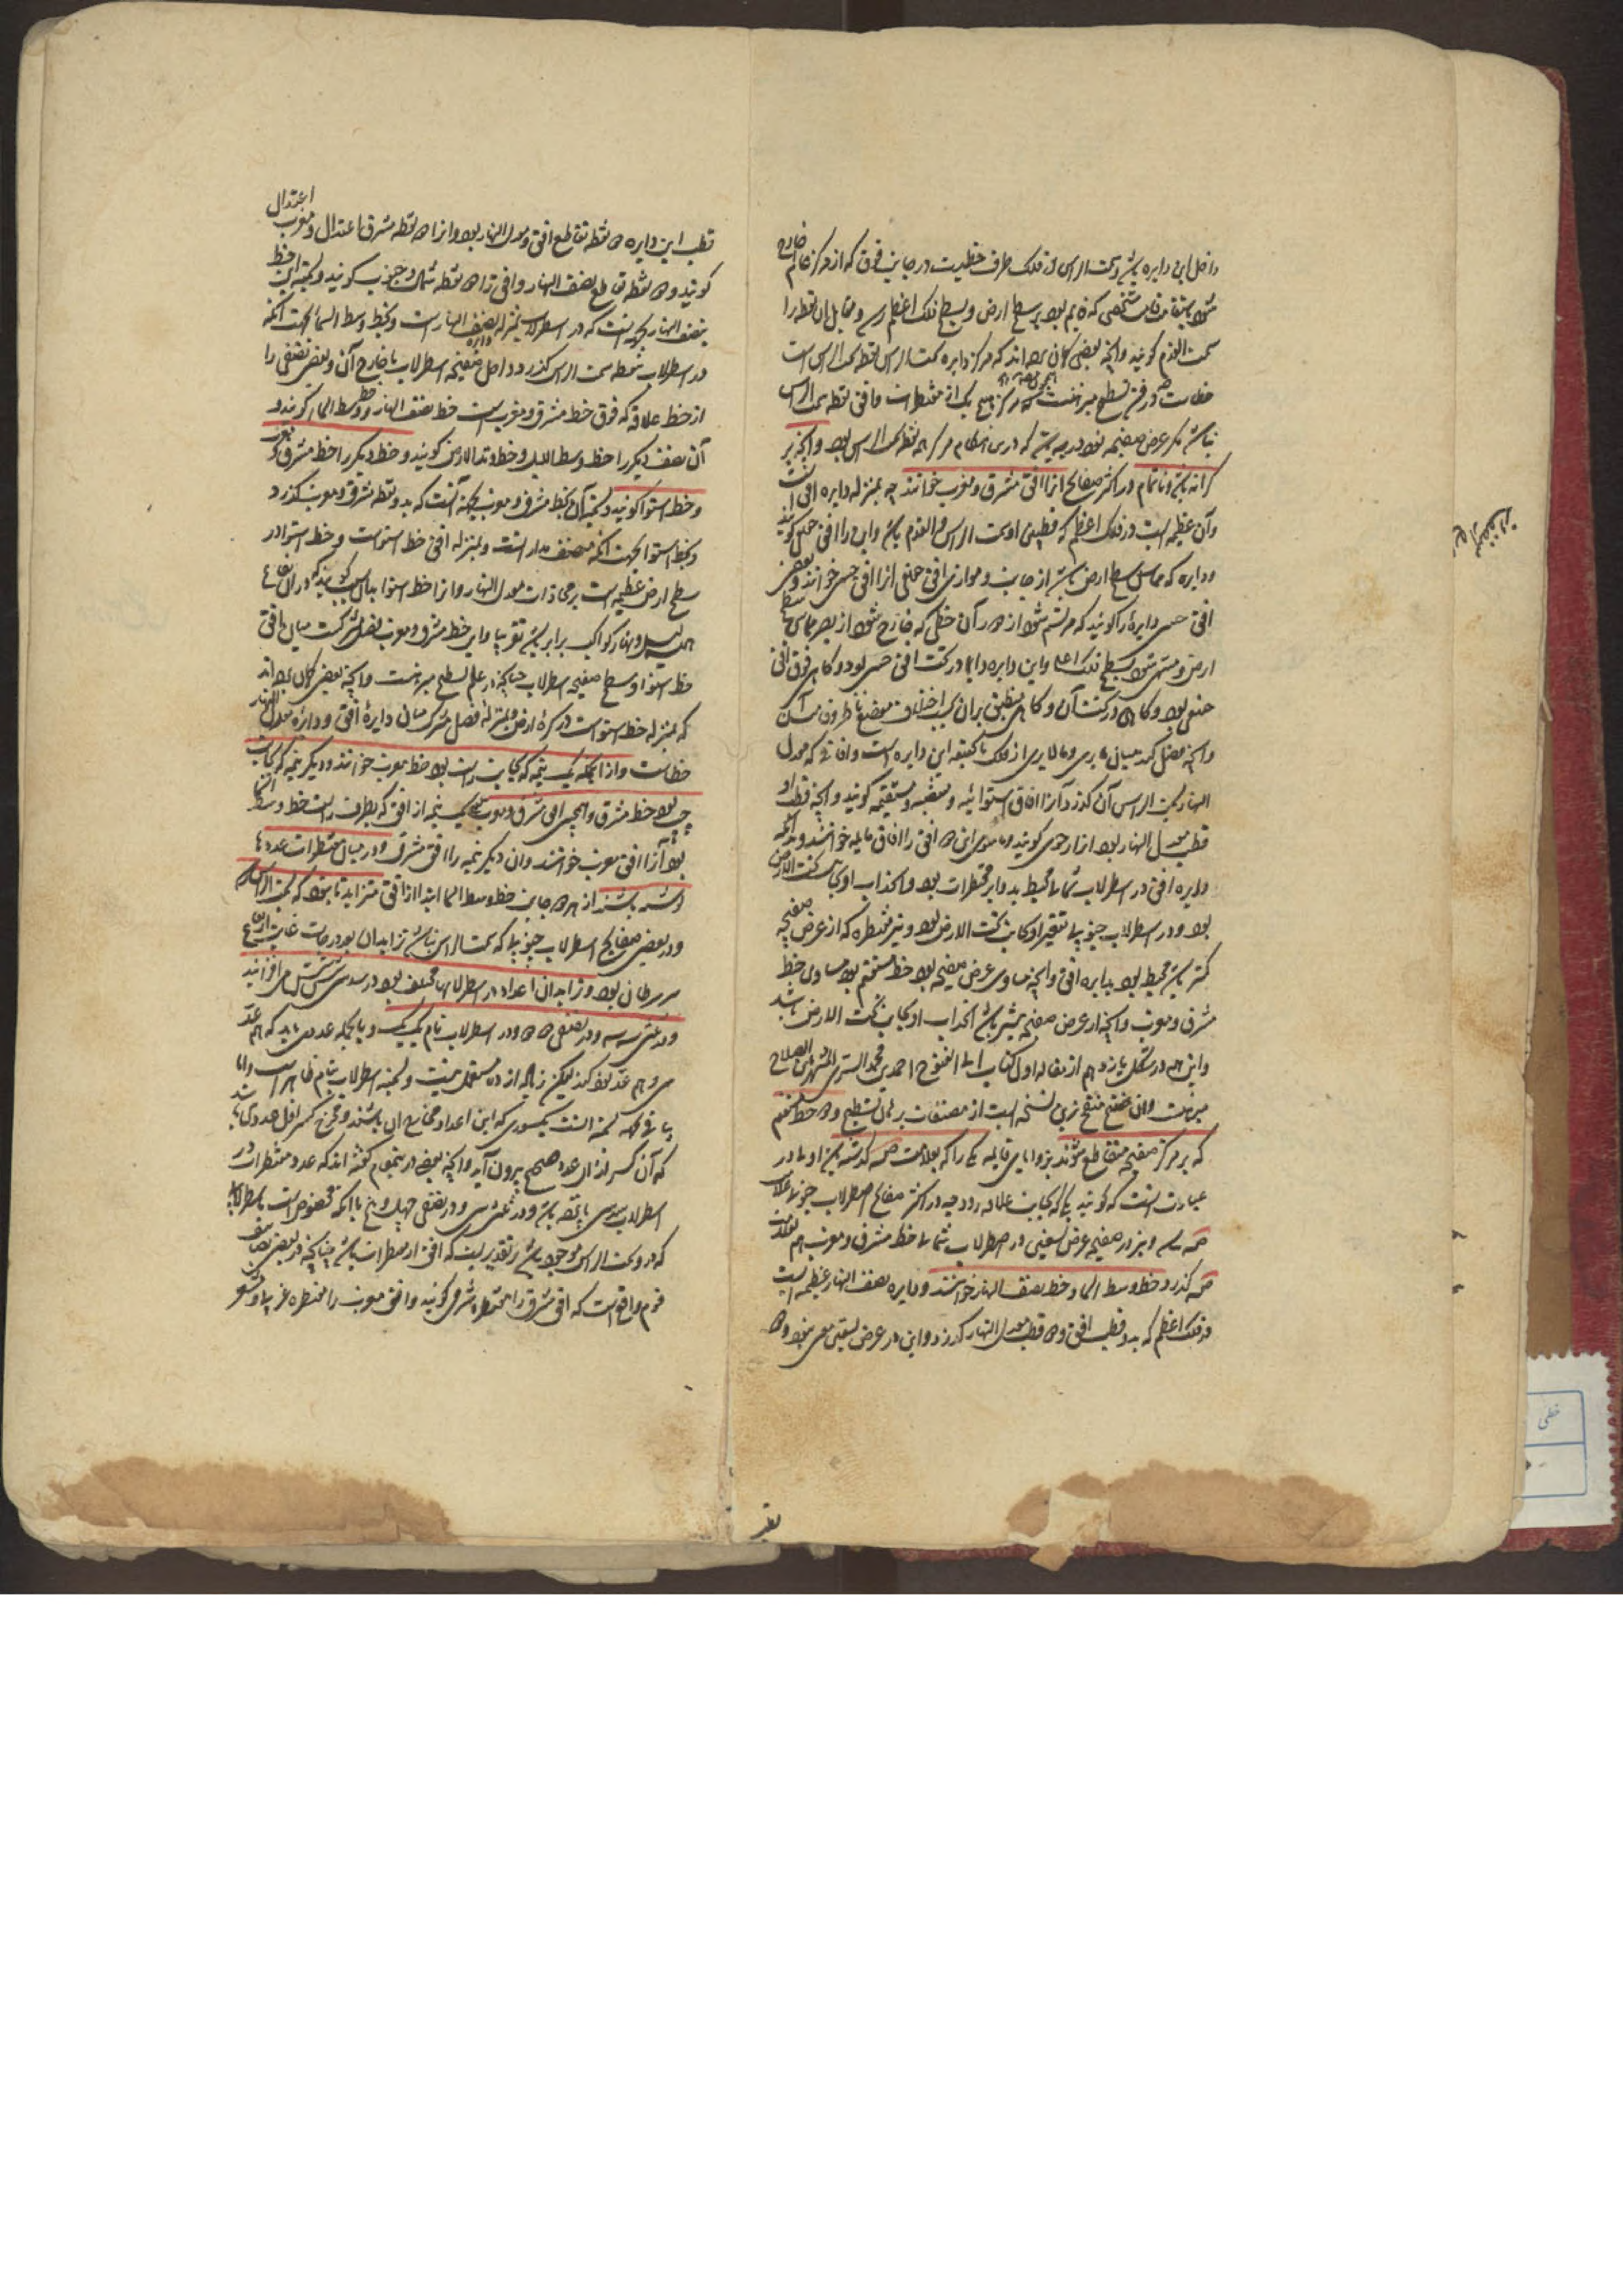 داخل این دایره باشد و سمت الراس در فلک طرف خطیست در جانب فوق که از مرکز عالم خارج
شود باستقامت قامت شخصی که قایم بود بر سطح ارض و بسطح فلک اعظم رسد و مقابل آن نقطه را
سمت القدم گویند و آنچه بعضی گمان برده‌اند که مرکز دایره سمت الراس نقطه سمت الراس است
خطاست چه در فن تسطیح مبرهنست که مرکز هیچ یک از مقنطرات و افق نقطه سمت الراس
نباشد مگر عرض صفیحه نود درجه باشد که درین هنگام مرکز همه نقطه سمت الراس بود و آنچه بر
کرانه باشد و ناتمام در اکثر صفائح آنرا افق مشرق و مغرب خوانند چه بمنزله دایره افق است
و آن عظیمه است در فلک اعظم که قطبین او سمت الراس و القدم باشد و این را افق حقیقی گویند
و دایره که مماس سطح ارض باشد از جانب و موازی افق حقیقی آنرا افق حسی خوانند و بعضی
افق حسی دایره را گویند که مرتسم شود از دور آن خطی که خارج شود از بصر مماس سطح
ارض و منتهی شود بسطح فلک اعلی و این دایره دایما در تحت افق حسی بود و گاهی فوق افق
حقیقی بود و گاهی در تحت آن و گاهی منطبق بر آن بحسب اختلاف موضع ناظر و قامت آن
و آنچه فصل کند میان مایری و مالایری از فلک بالحقیقه این دایره است و آفاقی که معدل
النهار بسمت الراس آن گذرد آنرا افاق استوائیه و منتصبه و مستقیمه گویند و آنچه قطب او
قطب معدل النهار بود آنرا رحوی گویند و ما سوی این دو افق را افاق مایله خوانند و آنچه
دایره افق در اسطرلاب شمالی محیط بدوایر مقنطرات بود و انحداب او بجانب تحت الارض
بود و در اسطرلاب جنوبی تقعیر او بجانب تحت الارض بود و نیز مقنطره که از عرض صفیحه
کمتر باشد محیط بود بدایره افق و آنچه مساوی عرض صفیحه بود خط مستقیم بود مساوی خط
مشرق و مغرب و آنچه از عرض صفیحه بیشتر باشد انحداب او بجانب تحت الارض باشد
و این همه در شکل یازدهم از مقاله اول کتاب ابی الفتوح احمد بن محمد السری المشهور بابن الصلاح
مبرهنست و آن منقح‌ترین نسخه است از مصنفات در علم تسطیح و دو خط مستقیم
که بر مرکز صفیحه متقاطع شوند بزوایای قایمه یکی را که بعلامت حمه گذشته میزاولی در
عبارت آنست که گویند یکی که بجانب علاقه رود چه در اکثر صفائح اسطرلاب جنوبی علامت
حمه نیست و نیز در صفیحه عرض تسعینی در اسطرلاب شمالی خط مشرق و مغرب هم بعلامت
حمه گذرد خط وسط السماء و خط نصف النهار خوانند و دایره نصف النهار عظیمه است
در فلک اعظم که بدو قطب افق و دو قطب معدل النهار گذرد و این در عرض تسعین معین نبود و دو
بقر
قطب این دایره دو نقطه تقاطع افق و معدل النهار بود و آنرا دو نقطه مشرق اعتدال و مغرب اعتدال
گویند و دو نقطه تقاطع نصف النهار و افق را دو نقطه شمال و جنوب گویند و تسمیه این خط
بنصف النهار بجهة آنست که در اسطرلاب بمنزله دایره نصف النهار است و بخط وسط السماء بجهت آنکه
در اسطرلاب بنقطه سمت الراس گذرد داخل صفیحه اسطرلاب یا خارج آن و بعضی نصفی را
از خط علاقه که فوق خط مشرق و مغرب است خط نصف النهار و خط وسط السماء گویند و
آن نصف دیگر را خط وسط اللیل و خط وتد الارض گویند و خط دیگر را خط مشرق و مغرب
و خط استوا گویند و تسمیه آن بخط مشرق و مغرب بجهة آنست که بدو نقطه مشرق و مغرب گذرد
و بخط استوا بجهت آنکه منصف مدار است و بمنزله افق خط استواست و خط استوا در
سطح ارض عظیمه است بر محاذات معدل النهار و آنرا خط استوا بدان سبب گویند که در آن بقاع
همیشه لیل و نهار کواکب برابر باشد تقریبا و این خط مشرق و مغرب فصل مشترکست میان افق
خط استوا و سطح صفیحه اسطرلاب چنانکه در علم تسطیح مبرهنست و آنچه بعضی گمان برده‌اند
که بمنزله خط استواست در کره ارض و بمنزله فصل مشترک میان دایره افق و دایره معدل النهار
خطاست و از اینجمله یک نیمه که بجانب راست بود خط مغرب خوانند و دیگر نیمه که بجانب
چپ بود خط مشرق و همچنین افق مشرق و مغرب یک نیمه از افق که بطرف راست خط وسط السماء
بود آنرا افق مغرب خوانند و آن دیگر نیمه را افق مشرق و در میان مقنطرات عددها
نوشته باشند از هر دو جانب خط وسط السماء ابتدا از افق متزاید تا بنود که سمت الراس است
و در بعضی صفایح اسطرلاب جنوبی که سمت الراس نباشد تزاید آن بعدد درجات غایت ارتفاع
سر سرطان بود و تزاید آن اعداد در اسطرلابها مختلف بود در سدسی شش شش می‌افزایند
و در ثلثی سه سه و در نصفی دو دو و در اسطرلاب تام یک یک و بالجمله عددی باید که هم عد
سی و هم عد نود کند لیکن زیاده از ده مستعمل نیست و تسمیه اسطرلاب بتام ظاهر است و اما
بباقی وجه تسمیه آنست بکسوری که این اعداد مخارج آن باشند و مخرج کسر اقل عددی باشد
که آن کسر از آن عدد صحیح بیرون آید و آنچه بعضی درینمقام گفته‌اند که عدد مقنطرات در
اسطرلاب سدسی پانزده باشد و در ثلثی سی و در نصفی چهل و پنج با آنکه مخصوص است باسطرلابی
که در و سمت الراس موجود باشد بر تقدیریست که افق از مقنطرات باشد چنانچه در بعضی تصانیف
قوم واقع است که افق مشرق را مقنطره شرقی گویند و افق مغرب را مقنطره غربی و مشهور
خطی